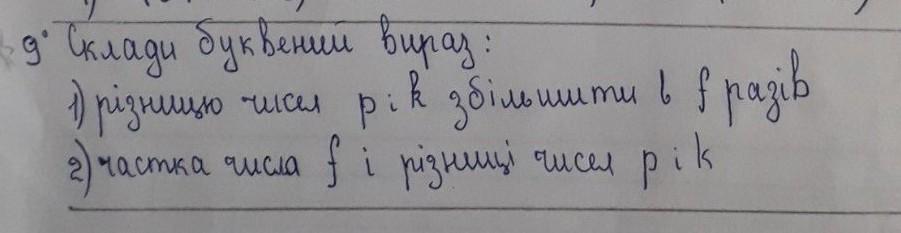 9° Склади буквений вираз:
1) різницю чисел p і k збільшити в f разів
2) частка числа f і різниці чисел p і k